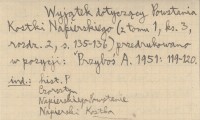 Wyjątek dotyczący Powstania
Kostki Napierskiego (z tomu 1, ks. 3,
rozdz. 2, s. 135-136) przedrukowano
w pozycji: Przyboś A. 1951: 119-120.
ind.: hist. P
Czorsztyn
Napierskiego Powstanie
Napierski Kostka